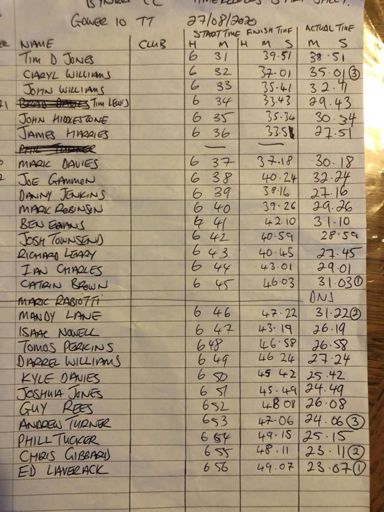 GOWER 10 TT 27/08/2020
START TIME FINISH TIME ACTUAL TIME
NAME CLUB H M H M S M S
TIM D JONES 6 31 39.51 38.51
CARYL WILLIAMS 6 32 37.01 35.01 ③
JOHN WILLIAMS 6 33 35.41 32.41
TIM LEWIS 6 34 33.43 29.43
JOHN HIDDLESTONE 6 35 35.34 30.34
JAMES HARRIES 6 36 33.51 27.51
PHIL TUCKER —— ——
MARK DAVIES 6 37 37.18 30.18
JOE GAMMON 6 38 40.24 32.24
DANNY JENKINS 6 39 36.16 27.16
MARK ROBINSON 6 40 39.26 29.26
BEN EVANS 6 41 42.10 31.10
JOSH TOWNSEND 6 42 40.59 28.59
RICHARD LEARY 6 43 40.45 27.45
IAN CHARLES 6 44 43.01 29.01
CATRIN BROWN 6 45 46.03 31.03 ①
MARK RABIOTTI DNS
MANDY LANE 6 46 47.22 31.22 ②
ISAAC NOWELL 6 47 43.19 26.19
TOMOS PERKINS 6 48 46.58 26.58
DARREL WILLIAMS 6 49 46 24 27 24
KYLE DAVIES 6 50 45 42 25.42
JOSHUA JONES 6 51 45.49 24.49
GUY REES 6 52 48 08 26.08
ANDREW TURNER 6 53 47.06 24.06 ③
PHILL TUCKER 6 54 49.15 25.15
CHRIS GIBBARD 6 55 48.11 23.11 ②
ED LAVERACK 6 56 49.07 23.07 ①